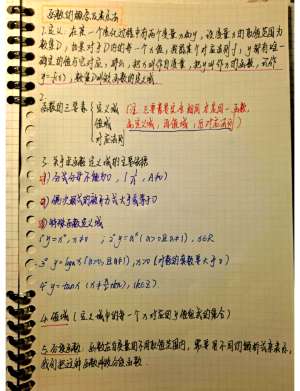 函数的概念及表示法
1.定义 在某一个变化过程中有两个变量x和y,设变量x的取值范围为
数集D,如果对于D内的每一个x值,按照某个对应法则f,y都有唯一
确定的值与它对应,那么,把x叫作自变量,把y叫作x的函数,记作
y=f(x),数集D叫做函数的定义域
2.
函数的三要素 { 定义域
值域
对应法则
(注:三要素完全相同方是同一函数,
①定义域,②值域,③对应法则)
3.关于求函数定义域的主要依据
①分式分母不能为0,(1/A,A≠0)
②偶次根式的被开方式大于或等于0
③特殊函数定义域
1° y=x⁰,x≠0 ; 2° y=aˣ(a>0且a≠1),x∈R
3° y=logₐx(a>0,且a≠1),x>0(对数的真数要大于0)
4° y=tanx(x≠π/2+kπ),(k∈Z).
4.值域(定义域中的每一个x对应的y值组成的集合)
5.分段函数:函数在自变量的不同取值范围内,需要用不同的解析式来表示,
我们把这种函数叫做分段函数.